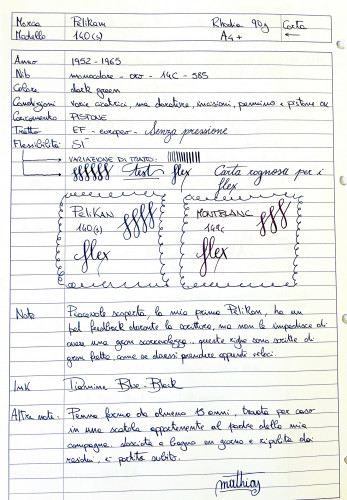 Marca Pelikan Rhodia 90g Carta
Modello 140(s) A4+ ←
Anno 1952 - 1965
Nib monocolore - oro - 14C - 585
Colore dark green
Condizioni varie cicatrici, ma dorature, incisioni, pennino e pistone ok
Caricamento PISTONE
Tratto EF - europeo - Senza pressione
Flessibilità SI
VARIAZIONE DI TRATTO:
test flex Carta rognosa per i
flex
PELIKAN MONTBLANC
140(s) 149c
flex flex
Note Piacevole scoperta, la mia prima Pelikan, ha un
bel feedback durante la scrittura, ma non le impedisce di
avere una gran scorrevolezza.. queste righe sono scritte di
gran fretta come se dovessi prendere appunti veloci.
Ink Diamine Blue-Black
Altre note: Penna ferma da almeno 15 anni, trovata per caso
in una scatola appartenente al padre della mia
compagna. lasciata a bagno un giorno e ripulita dai
residui, è partita subito.
mathias